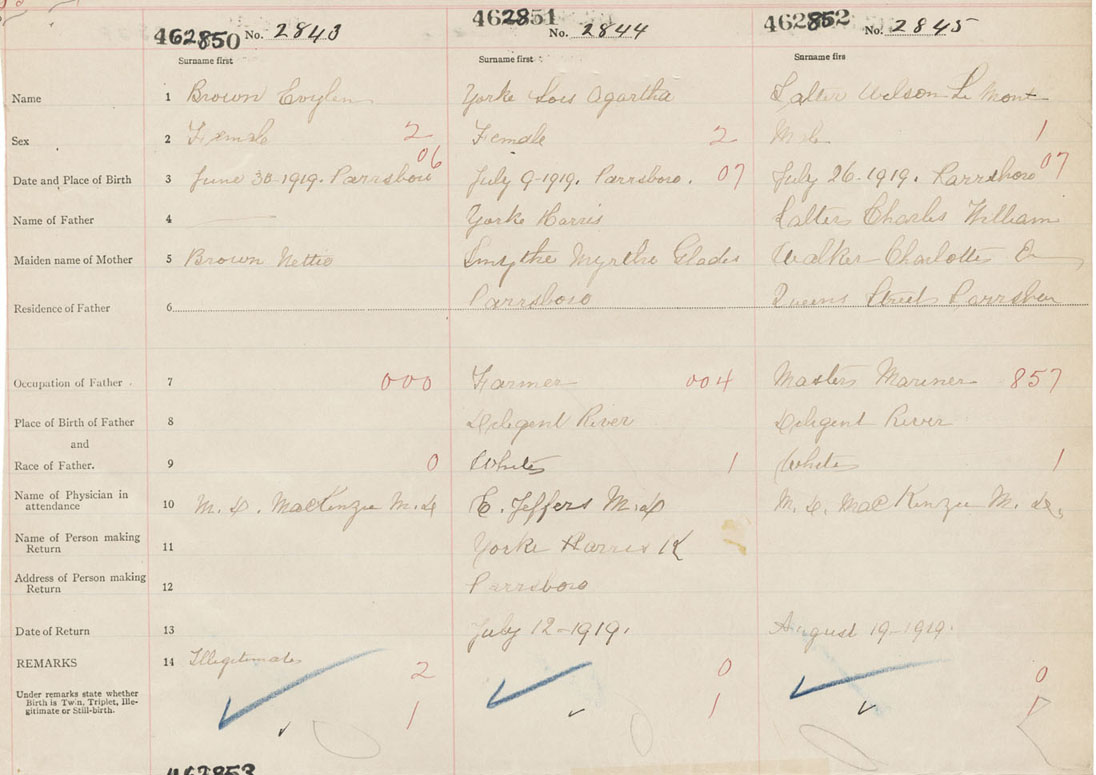 462850 No. 2843 462851 No. 2844 462852 No. 2845
Surname first Surname first Surname firs
Name 1 Brown Evylen Yorke Lois Agartha Salter Wilson Le Mont
Sex 2 Female 2 Female 2 Male 1
06 07 07
Date and Place of Birth 3 June 30-1919. Parrsboro July 9-1919. Parrsboro. July 26-1919. Parrsboro
Name of Father 4 Yorke Harris Salter Charles William
Maiden name of Mother 5 Brown Nettie Smythe Myrthe Gladis Walker Charlotte E
Residence of Father 6 Parrsboro Queens Street Parrsboro
Occupation of Father 7 000 Farmer 004 Master Mariner 857
Place of Birth of Father 8 Diligent River Diligent River
and
Race of Father. 9 0 White 1 White 1
Name of Physician in
attendance 10 M. D. MacKenzie M.D. E. Jeffers M.D. M. D. MacKenzie M.D.
Name of Person making
Return 11 Yorke Harris K
Address of Person making
Return 12 Parrsboro
Date of Return 13 July 12-1919. August 19-1919.
REMARKS 14 Illegitimate 2 0 0
Under remarks state whether
Birth is Twin, Triplet, Ille-
gitimate or Still-birth. 1 1 1
462853